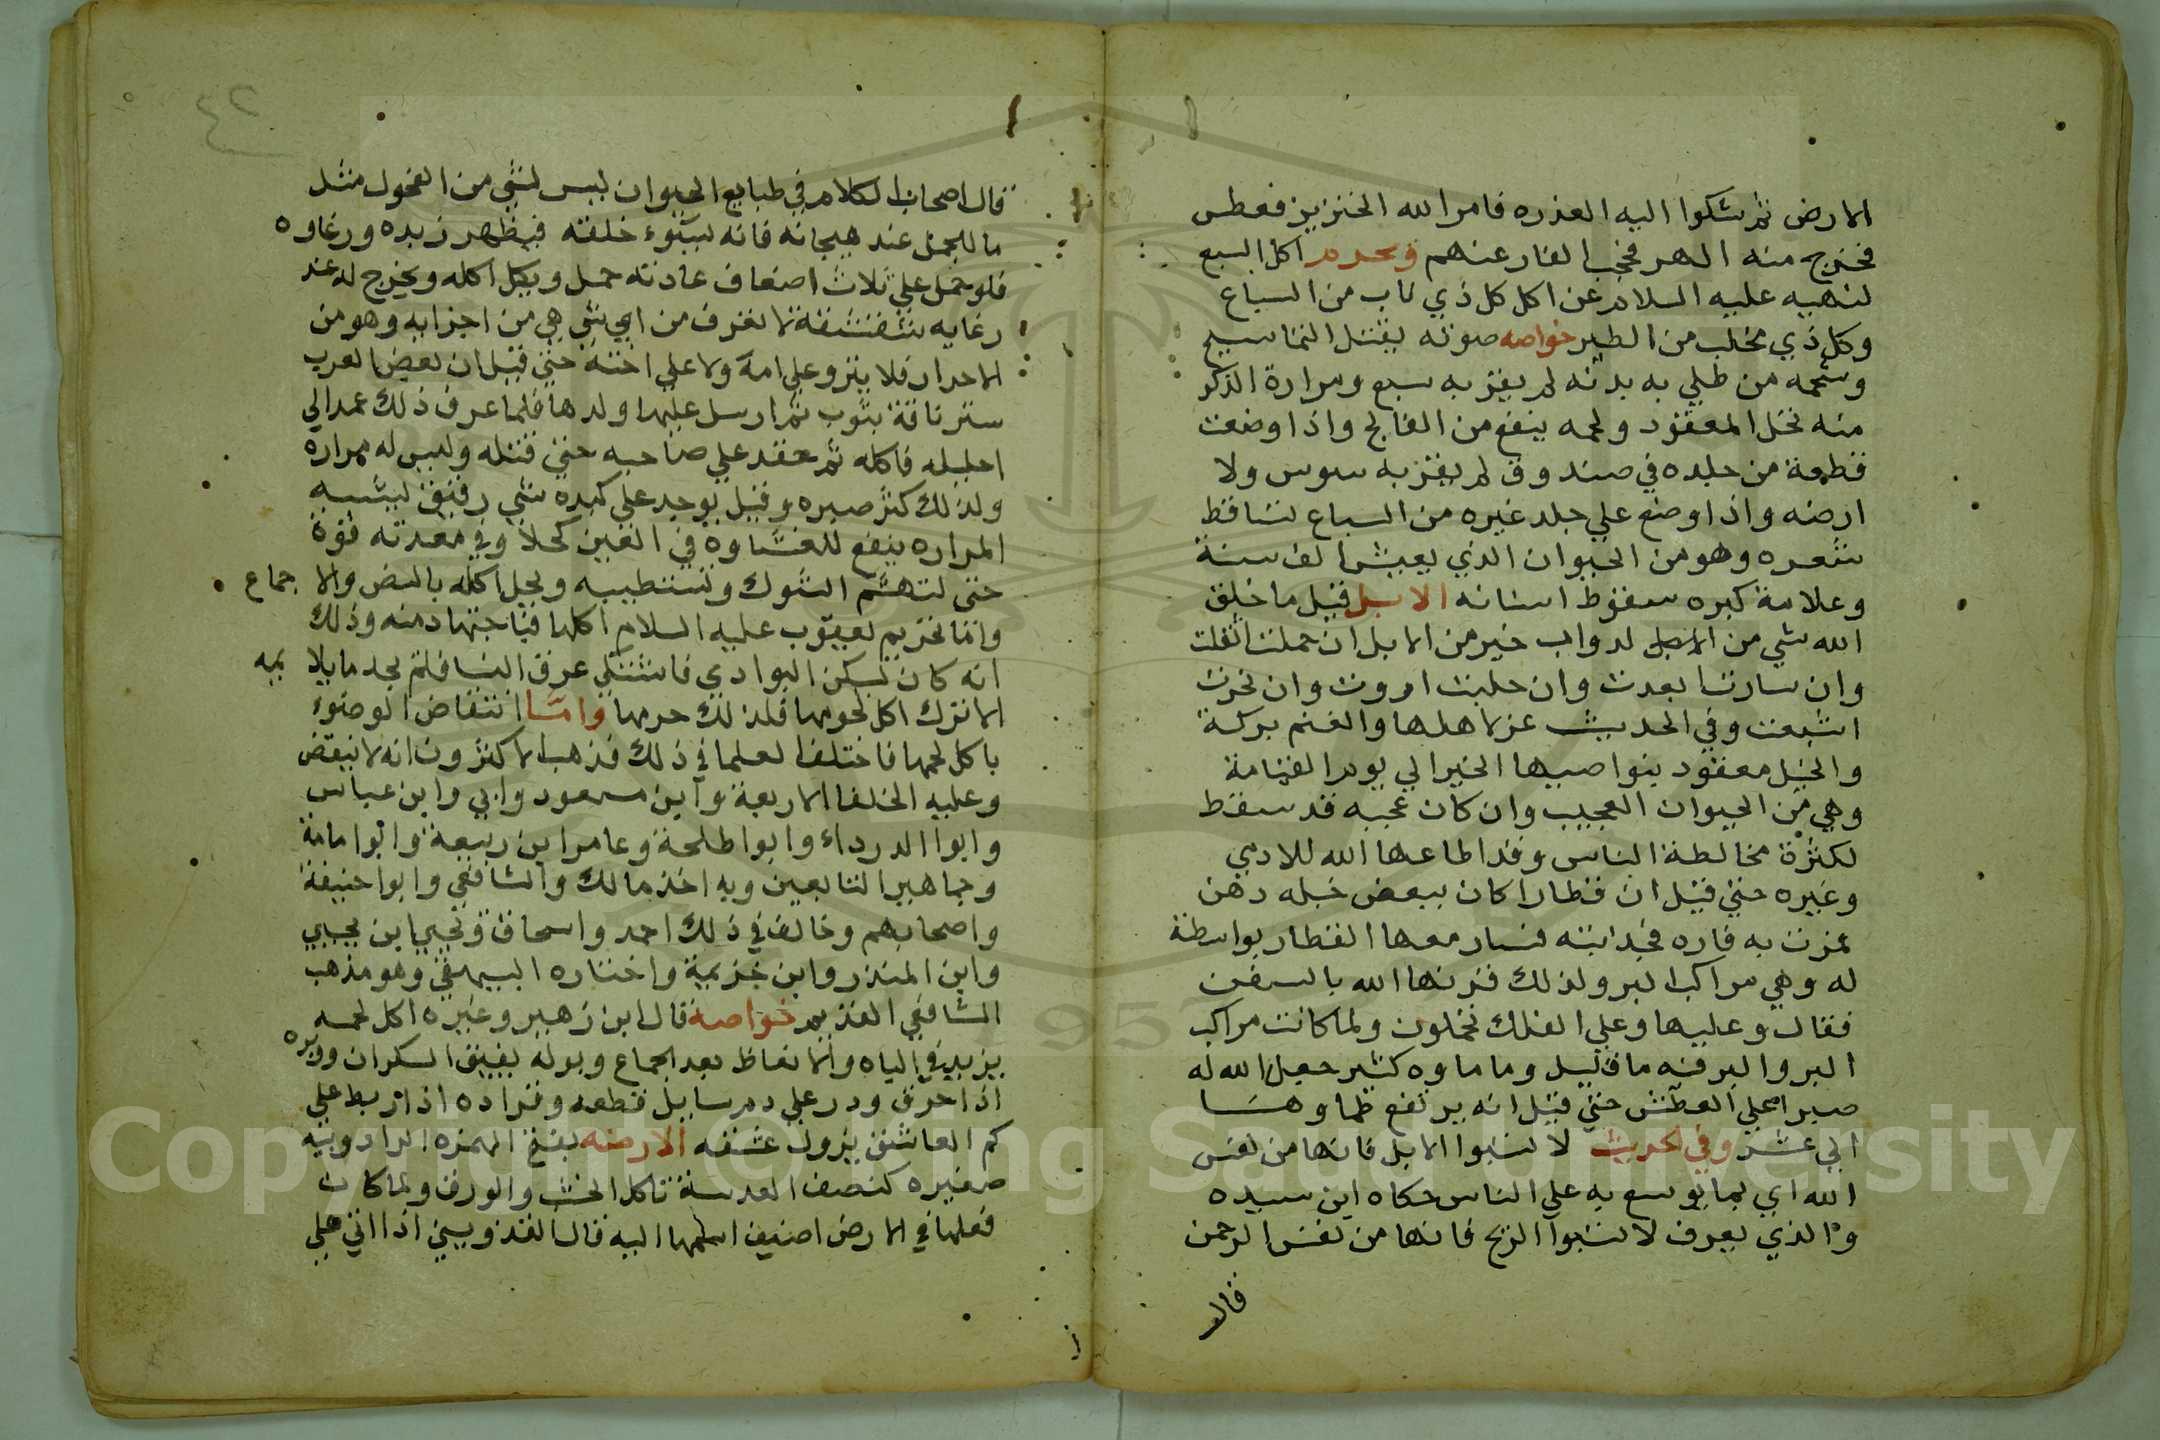 الارض ثم شكوا اليه العذره فامر الله الخنزيز فعطس
فخرج منه الهر فحجب الفار عنهم ويحرم اكل السبع
لنهيه عليه السلام عن اكل كل ذي ناب من السباع
وكل ذي مخلب من الطير خواصه صوته يقتل التماسيح
وشحمه من طلي به بدنه لم يقربه سبع ومرارة الذكر
منه تحل المعقود ولحمه ينفع من الفالج واذا وضعت
قطعة من جلده في صندوق لم يقربه سوس ولا
ارضه واذا وضع علي جلد غيره من السباع تساقط
شعره وهو من الحيوان الذي يعيش الف سنة
وعلامة كبره سقوط اسنانه الابل قيل ما خلق
الله شي من الدواب خير من الابل ان حملت اثقلت
وان سارت ابعدت وان حلبت اروت وان نحرت
اشبعت وفي الحديث عز لاهلها والغنم بركة
والخيل معقود بنواصيها الخير الي يوم القيامة
وهي من الحيوان العجيب وان كان عجبه قد سقط
لكثرة مخالطة الناس وقد اطاعها الله للادمي
وغيره حتي قيل ان قطارا كان ببعض حبله دهن
عمرت به فاره فجذبته فسار معها القطار بواسطة
له وهي مراكب البر ولذلك قرنها الله بالسفن
فقال وعليها وعلي الفلك تحملون ولما كانت مراكب
البر والبر فيه ما قليل وما ماوه كثير جعل الله له
صبرا علي العطش حتي قيل انه يرتفع ظماوها
الي عشر وفي الحديث لا تسبوا الابل فانها من نفس
الله اي بما يوسع به علي الناس حكاه ابن سيده
والذي يعرف لا تسبوا الريح فانها من نفس الرحمن
قال
٤٢
قال اصحاب الكلام في طبايع الحيوان ليس لشي من الفحول مثل
ما للجمل عند هيجانه فانه يسوء خلقه فيظهر زبده ورغاوه
فلو حمل علي ثلاث اضعاف عادته حمل ويقل اكله ويخرج له عند
رغايه شقشقة لا تعرف من اي شي هي من اجزايه وهو من
الاحرار فلا ينزو علي امه ولا علي اخته حتي قيل ان بعض العرب
ستر ناقة بثوب ثم ارسل عليها ولدها فلما عرف ذلك عمد الي
احليله فاكله ثم حقد علي صاحبه حتي قتله وليس له مراره
ولذلك كثر صبره وقيل يوجد علي كبده شي رقيق يشبه
المراره ينفع للغشاوه في العين كحلا وفي معدته قوة
حتي لتهشم الشوك وتستطيبه ويحل اكله بالنص والاجماع
وانما تحريم يعقوب عليه السلام اكلها فباجتهاد منه وذلك
انه كان يسكن البوادي فاشتكي عرق النسا فلم يجد ما يلايمه
الا ترك اكل لحومها فلذلك حرمها واما انتقاض الوضوء
باكل لحمها فاختلف العلما في ذلك فذهب الاكثرون انه لا ينقض
وعليه الخلفا الاربعة وابن مسعود وابي وابن عباس
وابوا الدرداء وابوا طلحة وعامر ابن ربيعة وابوا مامة
وجماهير التابعين وبه اخذ مالك والشافعي وابوا حنيفة
واصحابهم وخالف في ذلك احمد واسحاق ويحيي ابن يحيي
وابن المنذر وابن خزيمة واختاره البيهقي وهو مذهب
الشافعي القديم خواصه قال ابن زهير وغيره اكل لحمه
يزيد في الباه والانعاظ بعد الجماع وبوله يفيق السكران ووبره
اذا احرق وذر علي دم سايل قطعه وقراده اذا ربط علي
كم العاشق يزول عشقه الارضه بفتح الهمزه الرا دويبه
صغيره كنصف العدسة تاكل الخشب والورق ولما كان
فعلها في الارض اضيف اسمها اليه قال القزويني اذا اتي علي